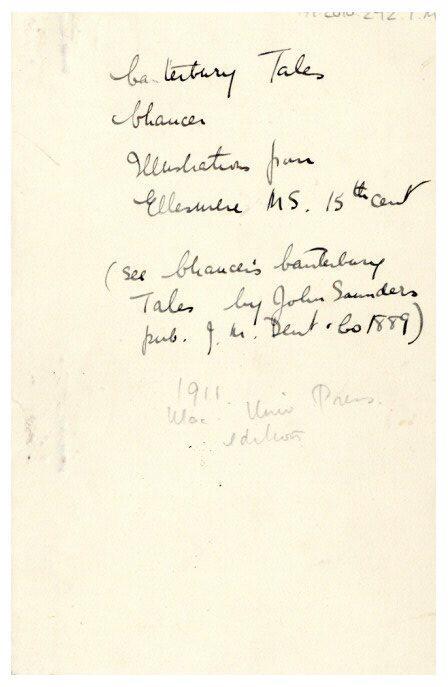 Canterbury Tales
Chaucer
Illustrations from
Ellesmere MS. 15th cent
(see Chaucer's Canterbury
Tales by John Saunders
pub. J. M. Dent & Co 1889)
1911.
Mac. Univ Press.
edition